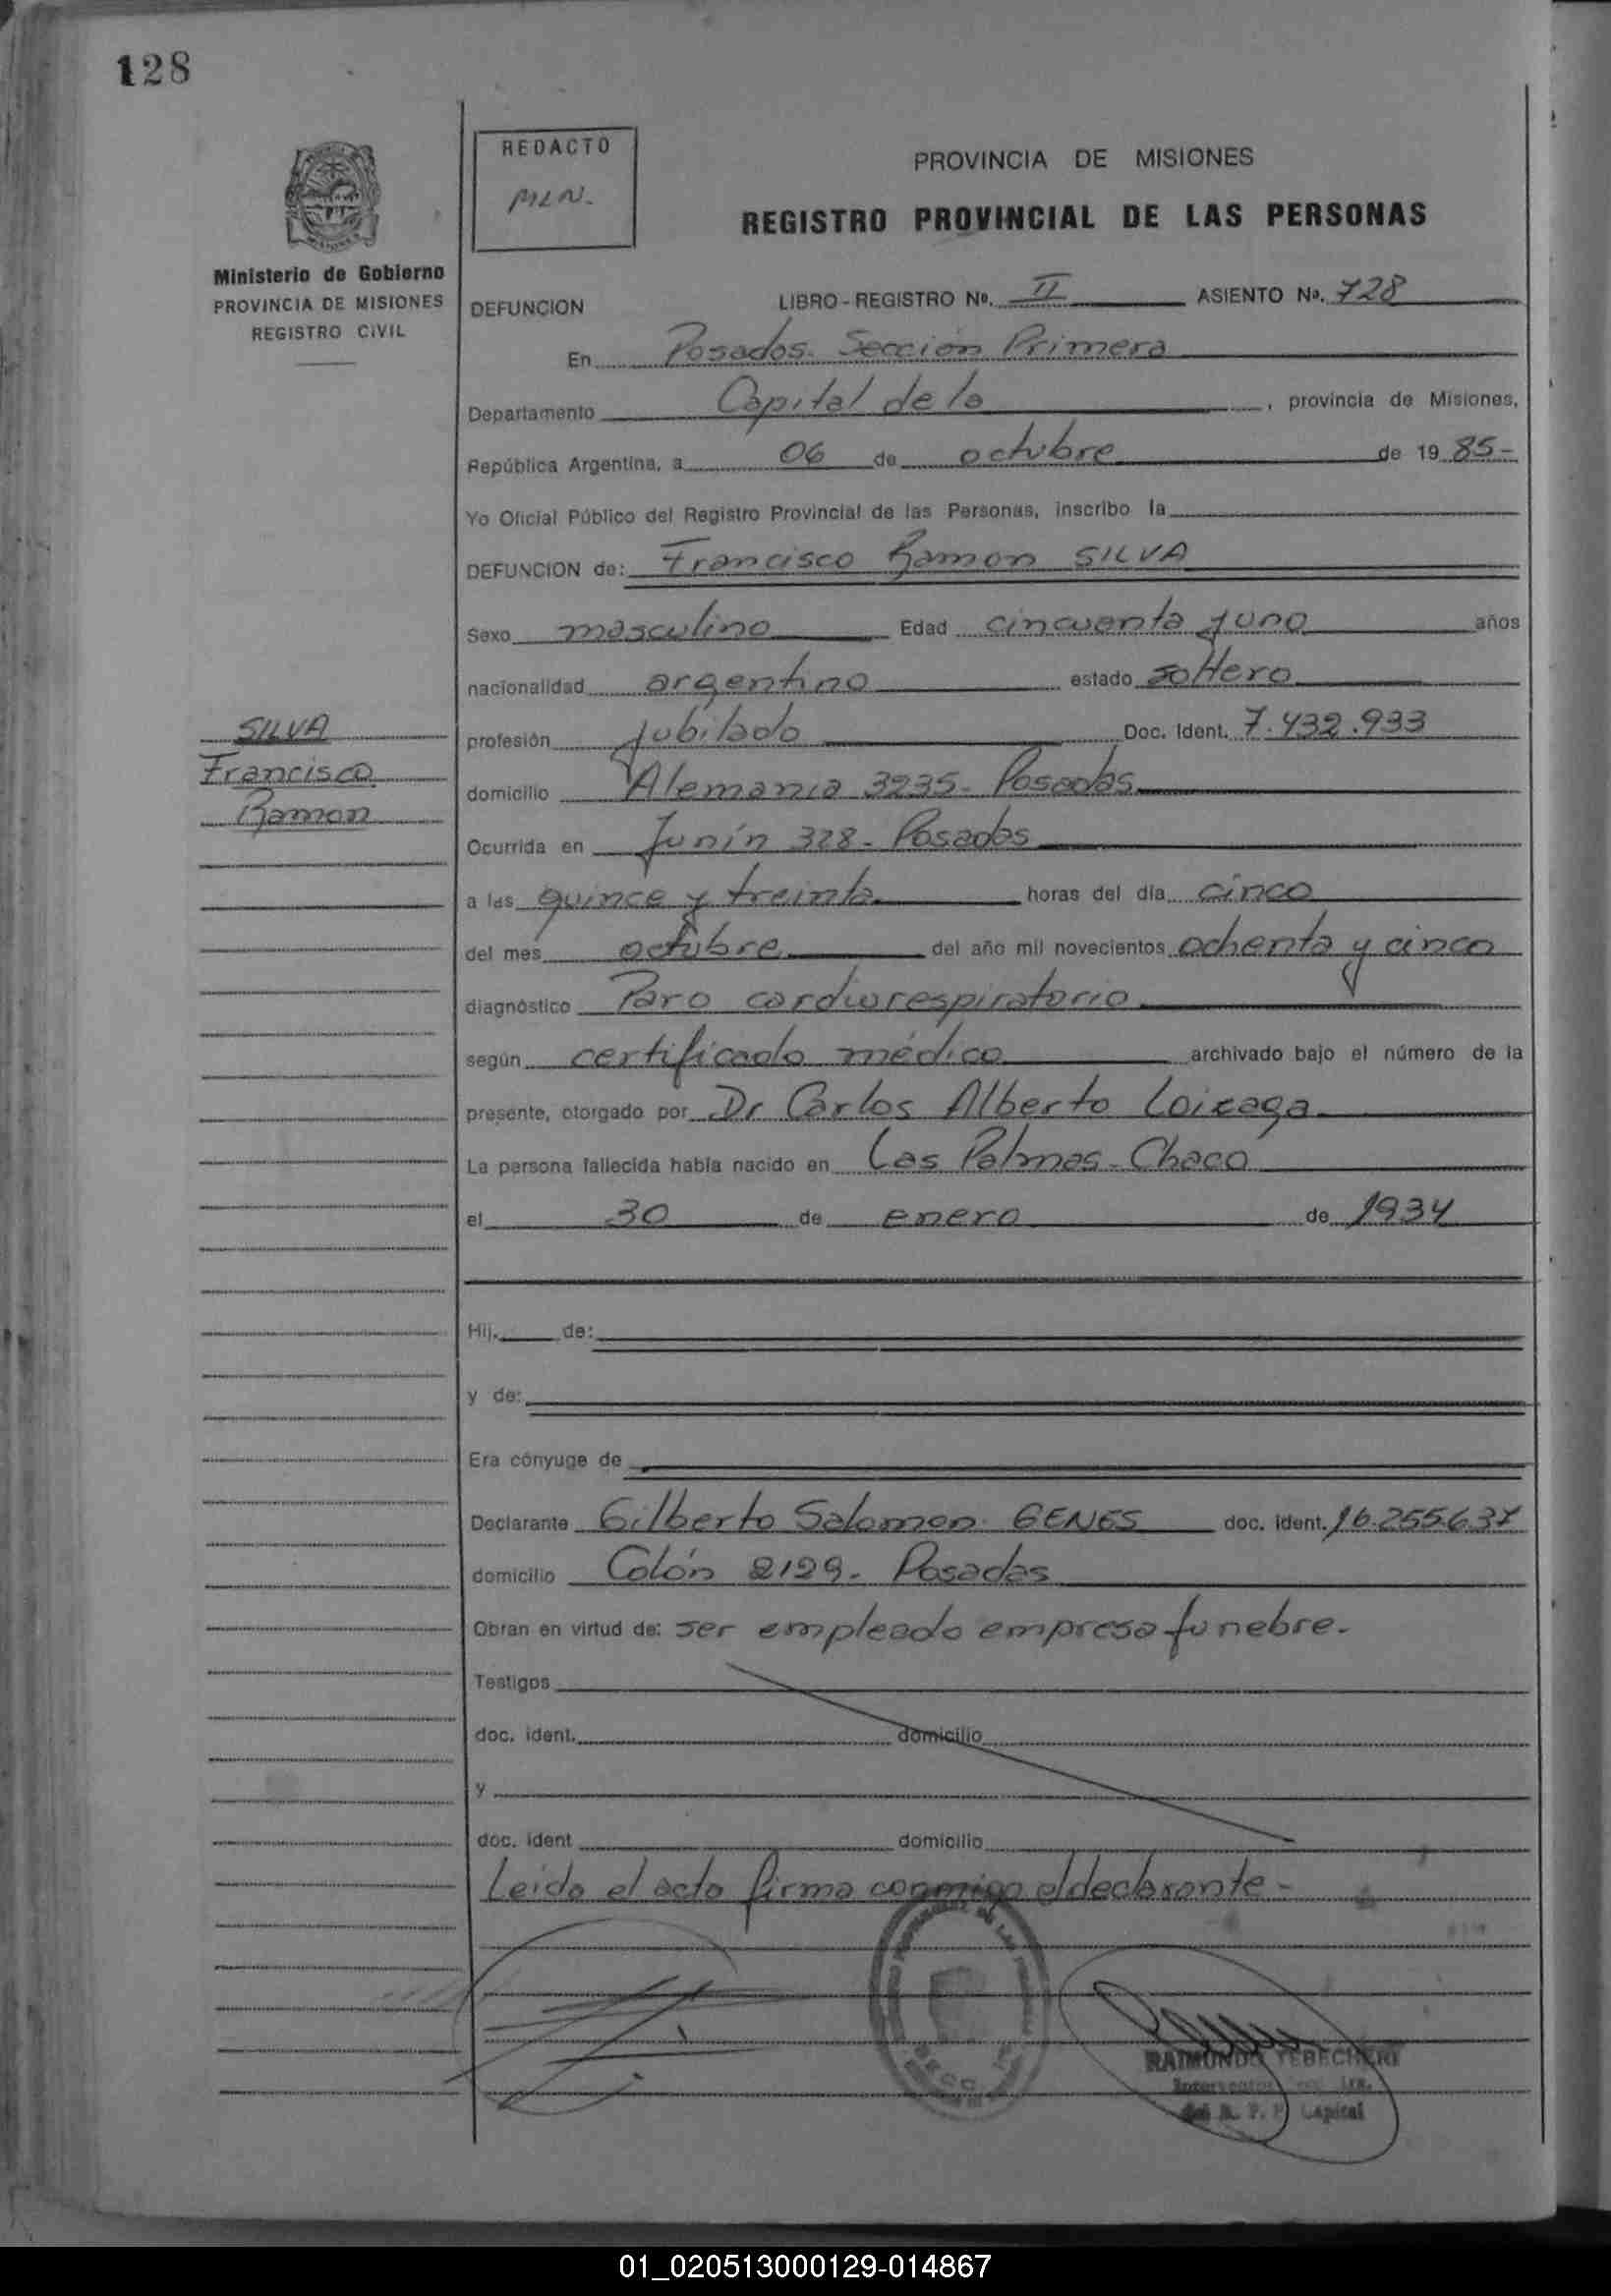 128
REDACTO
MLN.
PROVINCIA DE MISIONES
REGISTRO PROVINCIAL DE LAS PERSONAS
Ministerio de Gobierno
PROVINCIA DE MISIONES
REGISTRO CIVIL
DEFUNCION LIBRO - REGISTRO Nº. II ASIENTO Nº. 728
En Posadas. Sección Primera
Departamento Capital de la, provincia de Misiones,
República Argentina, a 06 de octubre de 19 85-
Yo Oficial Público del Registro Provincial de las Personas, inscribo la
DEFUNCION de: Francisco Ramon SILVA
Sexo masculino Edad cincuenta y uno años
nacionalidad argentino estado soltero
SILVA
Francisco
Ramon
profesión Jubilado Doc. Ident. 7.432.933
domicilio Alemania 3235- Posadas
Ocurrida en Junín 328- Posadas
a las quince y treinta horas del día cinco
del mes octubre del año mil novecientos ochenta y cinco
diagnóstico Paro cardiorespiratorio
según certificado médico archivado bajo el número de la
presente, otorgado por Dr Carlos Alberto Loizaga
La persona fallecida había nacido en Las Palmas- Chaco
el 30 de enero de 1934
Hij. de:
y de:
Era cónyuge de
Declarante Gilberto Salomon GENES doc. ident. 16.255.637
domicilio Colón 2129- Posadas
Obran en virtud de: ser empleado empresa funebre.
Testigos
doc. ident. domicilio
y
doc. ident domicilio
Leida el acta firma conmigo el declarante-
RAIMUNDO YEBECHERI
Capital
01_020513000129-014867